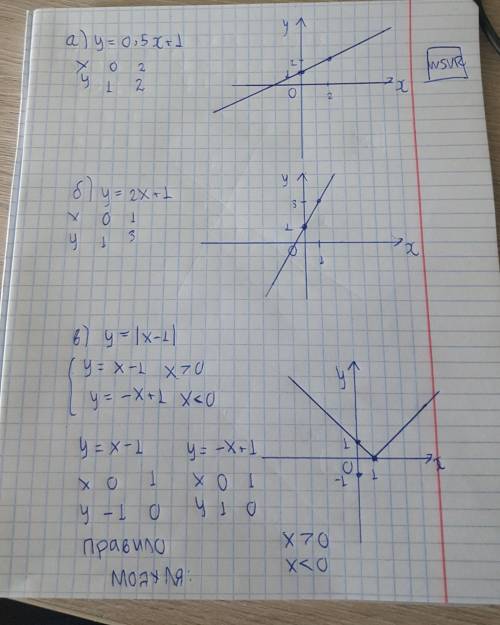 а) y=0,5x+1
x 0 2
y 1 2
y
2
1
0
2
x
WSVR
б) y=2x+1
x 0 1
y 1 3
y
3
1
0
1
x
в) y=|x-1|
y=x-1 x>0
y=-x+1 x<0
y
1
0
1
-1
x
y=x-1 y=-x+1
x 0 1 x 0 1
y -1 0 y 1 0
правило x>0
модуля: x<0